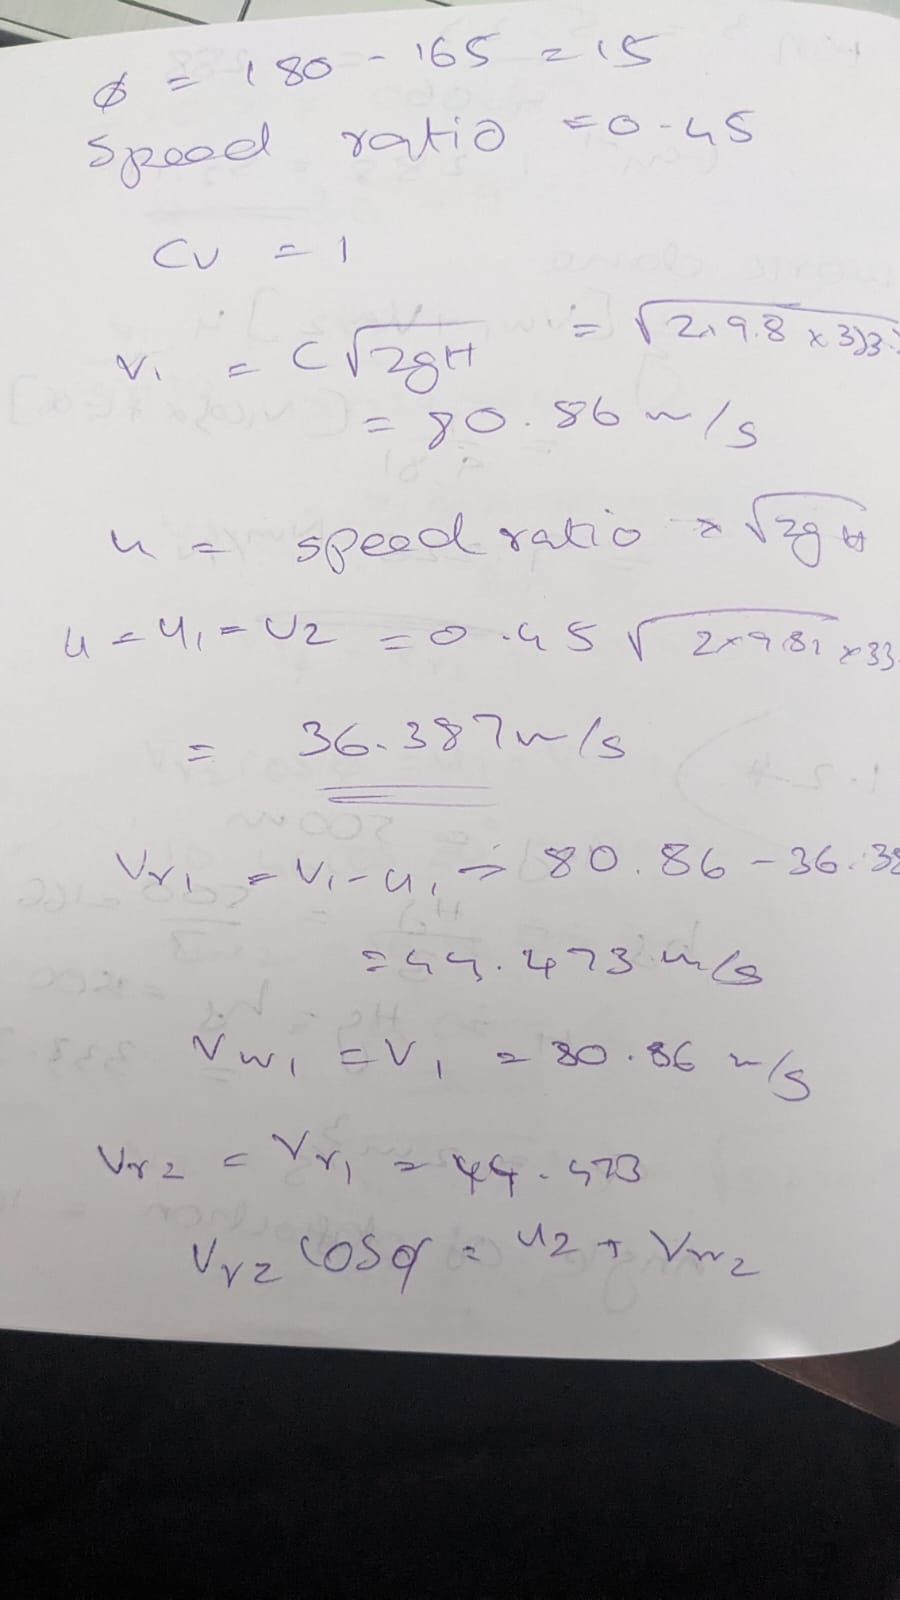 ϕ = 180 - 165 = 15
Speed ratio = 0.45
Cv = 1
V₁ = C√2gH = √2×9.8 × 333.
= 80.86 m/s
u = speed ratio × √2gH
u = u₁ = U2 = 0.45 √2×9.81 × 33
= 36.387 m/s
Vr₁ = V₁ - u₁ = 80.86 - 36.38
= 44.473 m/s
Vw₁ = V₁ = 80.86 m/s
Vr2 = Vr₁ = 44.473
Vr2 cosϕ = u2 + Vw2